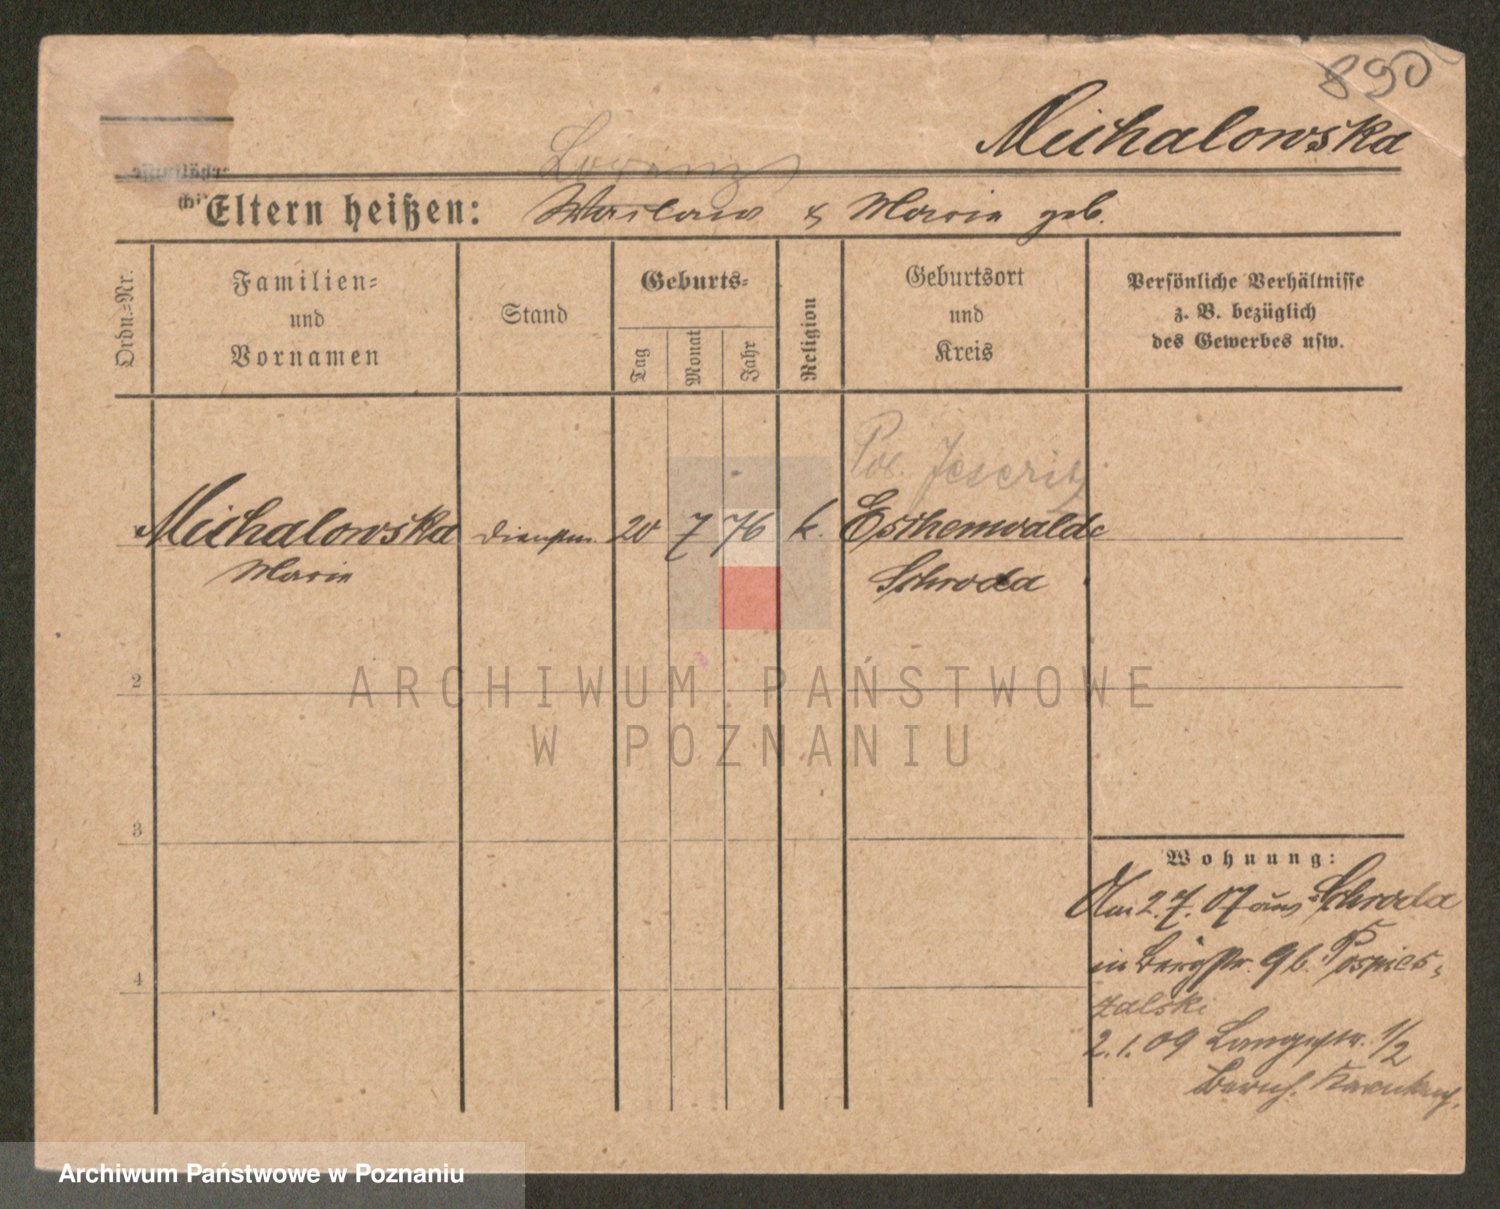 890
Michalowska
Lorenz
Eltern heißen: Waclaw & Marie geb.
Ordn.-Nr.
Familien-
und
Vornamen
Stand
Geburts-
Tag
Monat
Jahr
Religion
Geburtsort
und
Kreis
Persönliche Verhältnisse
z. B. bezüglich
des Gewerbes usw.
Michalowska
Marie
Dienstm.
20
7
76
k.
Jeseritz
Eschenwalde
Schroda
2
3
4
Wohnung:
Am 2.7.07 aus Schroda
in Bergstr. 9 b. Pospies-
zalski
2.1.09 Langestr. 1/2
ARCHIWUM PAŃSTWOWE
W POZNANIU
Archiwum Państwowe w Poznaniu